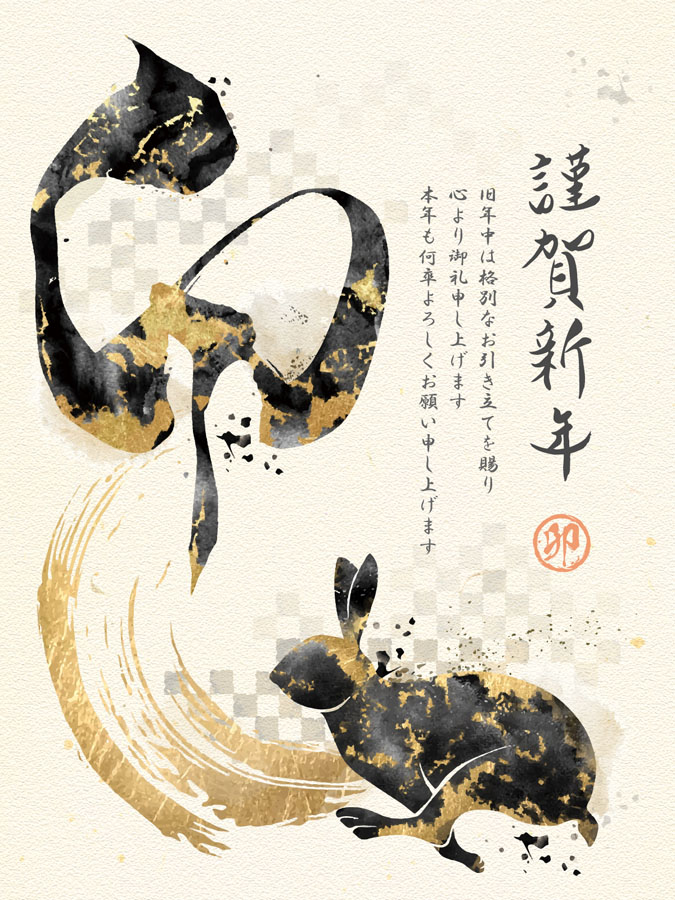 謹賀新年
卯
旧年中は格別なお引き立てを賜り
心より御礼申し上げます
本年も何卒よろしくお願い申し上げます
卯